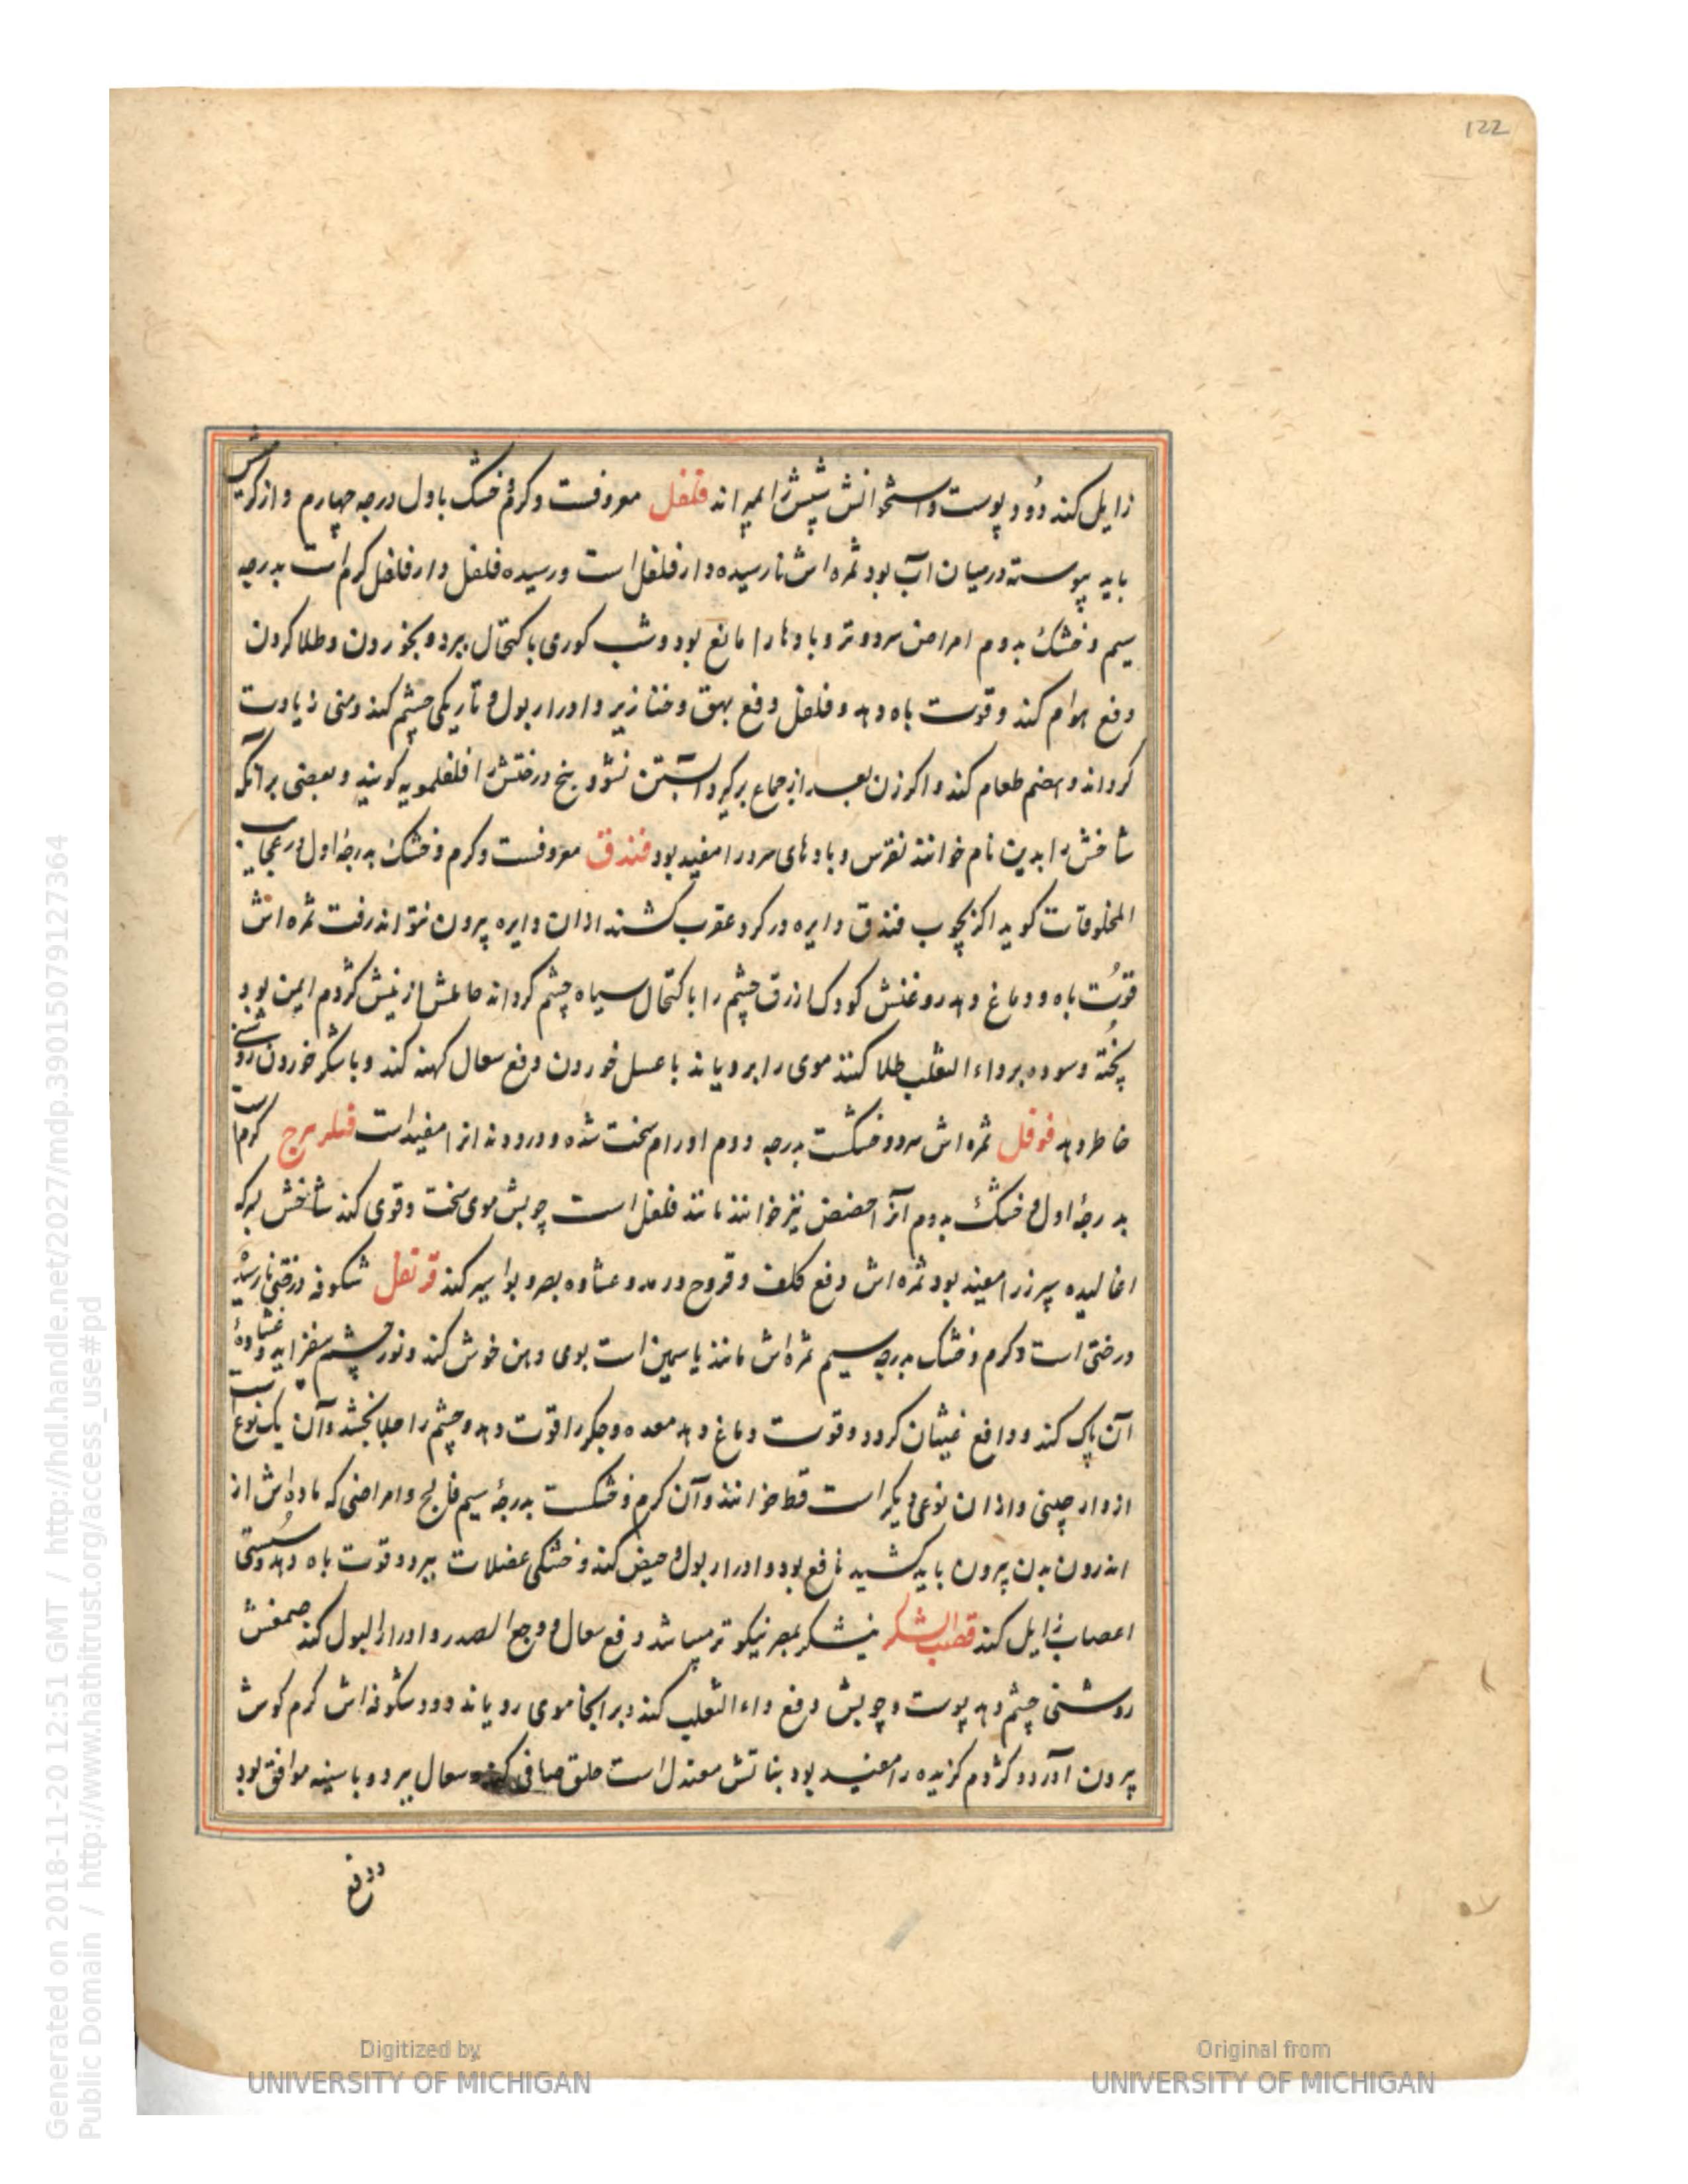 122
زایل کند دُود پوست و استخوانش شپش را میراند فلفل معروفست و کرم و خشک باول درجه چهارم و از کرمیش
باید پیوسته درمیان آب بود ثمره اش نارسیده دارفلفل است ورسیده فلفل دارفلفل کرم است بدرجه
سیم و خشک بدوم امراض سرد و تر و بادها را مانع بود و شب کوری باکتحال ببرد و بخوردن و طلا کردن
دفع هوام کند و قوت باه دهد و فلفل دفع بهق و خنازیر و ادرار بول و تاریکی چشم کند و منی زیادت
کرداند و هضم طعام کند و اکر زن بعد از جماع برکیرد آبستن نشود و بیخ درختش را فلفلمویه کویند و بعضی برانکه
شاخش را بدین نام خوانند نقرس و بادهای سرد را مفید بود فندق معروفست و کرم و خشک بدرجهٔ اول در عجایب
المخلوقات کوید اکر بچوب فندق دایره در کرد عقرب کشند ازان دایره بیرون نتواند رفت ثمره اش
قوّت باه و دماغ دهد روغنش کودک ازرق چشم را باکتحال سیاه چشم کرداند حاملش از نیش کژدم ایمن بود
پخته و سوده برداء الثعلب طلا کنند موی را برویاند با عسل خوردن دفع سعال کهنه کند و با شکر خوردن روشنی
خاطر دهد فوفل ثمره اش سرد و خشکست بدرجه دوم اورام سخت شده و درد دندانرا مفید است فیلزهرج کرم است
بدرجهٔ اول و خشک بدوم آنرا حضض نیز خوانند مانند فلفل است چوبش موی سخت و قوی کند شاخش بسرکه
اغالیده سپرز را مفید بود ثمره اش دفع کلف و قروح و رمد و عشاوه بصر و بواسیر کند قرنفل شکوفه درختی نارسیده
درختی است و کرم و خشک بدرجه سیم ثمره اش مانند یاسمین است بوی دهن خوش کند و نور چشم بیفزاید و غشاوهٔ
آن پاک کند و دافع غیثان کردد و قوت دماغ دهد معده و جکر را قوت دهد و چشم را جلا بخشد و آن یک نوع است
از دارچینی و ازان نوعی دیکر است قط خوانند و آن کرم و خشکست بدرجهٔ سیم فالج و امراضی که ماده اش از
اندرون بدن بیرون باید کشید نافع بود و ادرار بول و حیض کند و خشکی عضلات ببرد و قوت باه دهد و سُستی
اعصاب زایل کند قصب السکر نیشکر بمصر نیکو تر میباشد دفع سعال و وجع الصدر و ادرار البول کند صمغش
روشنی چشم دهد پوست و چوبش دفع داء الثعلب کند و بر آنجا موی رویاند و دود شکوفه اش کرم کوش
بیرون آورد و کژدم کزیده را مفید بود بناتش معتدل است حلق صافی کند و سعال ببرد و با سینه موافق بود
ودفع
Generated on 2018-11-20 12:51 GMT / http://hdl.handle.net/2027/mdp.39015079127364
Public Domain / http://www.hathitrust.org/access_use#pd
Digitized by
UNIVERSITY OF MICHIGAN
Original from
UNIVERSITY OF MICHIGAN